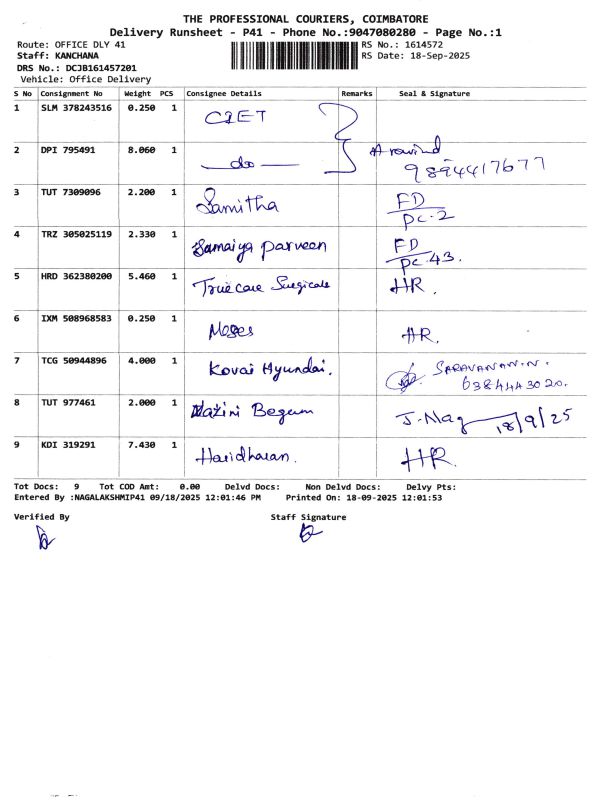 THE PROFESSIONAL COURIERS, COIMBATORE
Delivery Runsheet - P41 - Phone No.:9047080280 - Page No.:1
Route: OFFICE DLY 41 RS No.: 1614572
Staff: KANCHANA RS Date: 18-Sep-2025
DRS No.: DCJB161457201
Vehicle: Office Delivery
S No Consignment No Weight PCS Consignee Details Remarks Seal & Signature
1 SLM 378243516 0.250 1 CIET
2 DPI 795491 8.060 1 do Aravind
9894417677
3 TUT 7309096 2.200 1 Samitha FD
PC.2
4 TRZ 305025119 2.330 1 Samaiya parveen FD
PC.43.
5 HRD 362380200 5.460 1 True care Surgicals HR.
6 IXM 508968583 0.250 1 Moses HR.
7 TCG 50944896 4.000 1 Kovai Hyundai. SARAVANAN.N.
6384443020.
8 TUT 977461 2.000 1 Nazini Begum J. Nag 18/9/25
9 KDI 319291 7.430 1 Haridharan. HR.
Tot Docs: 9 Tot COD Amt: 0.00 Delvd Docs: Non Delvd Docs: Delvy Pts:
Entered By :NAGALAKSHMIP41 09/18/2025 12:01:46 PM Printed On: 18-09-2025 12:01:53
Verified By Staff Signature